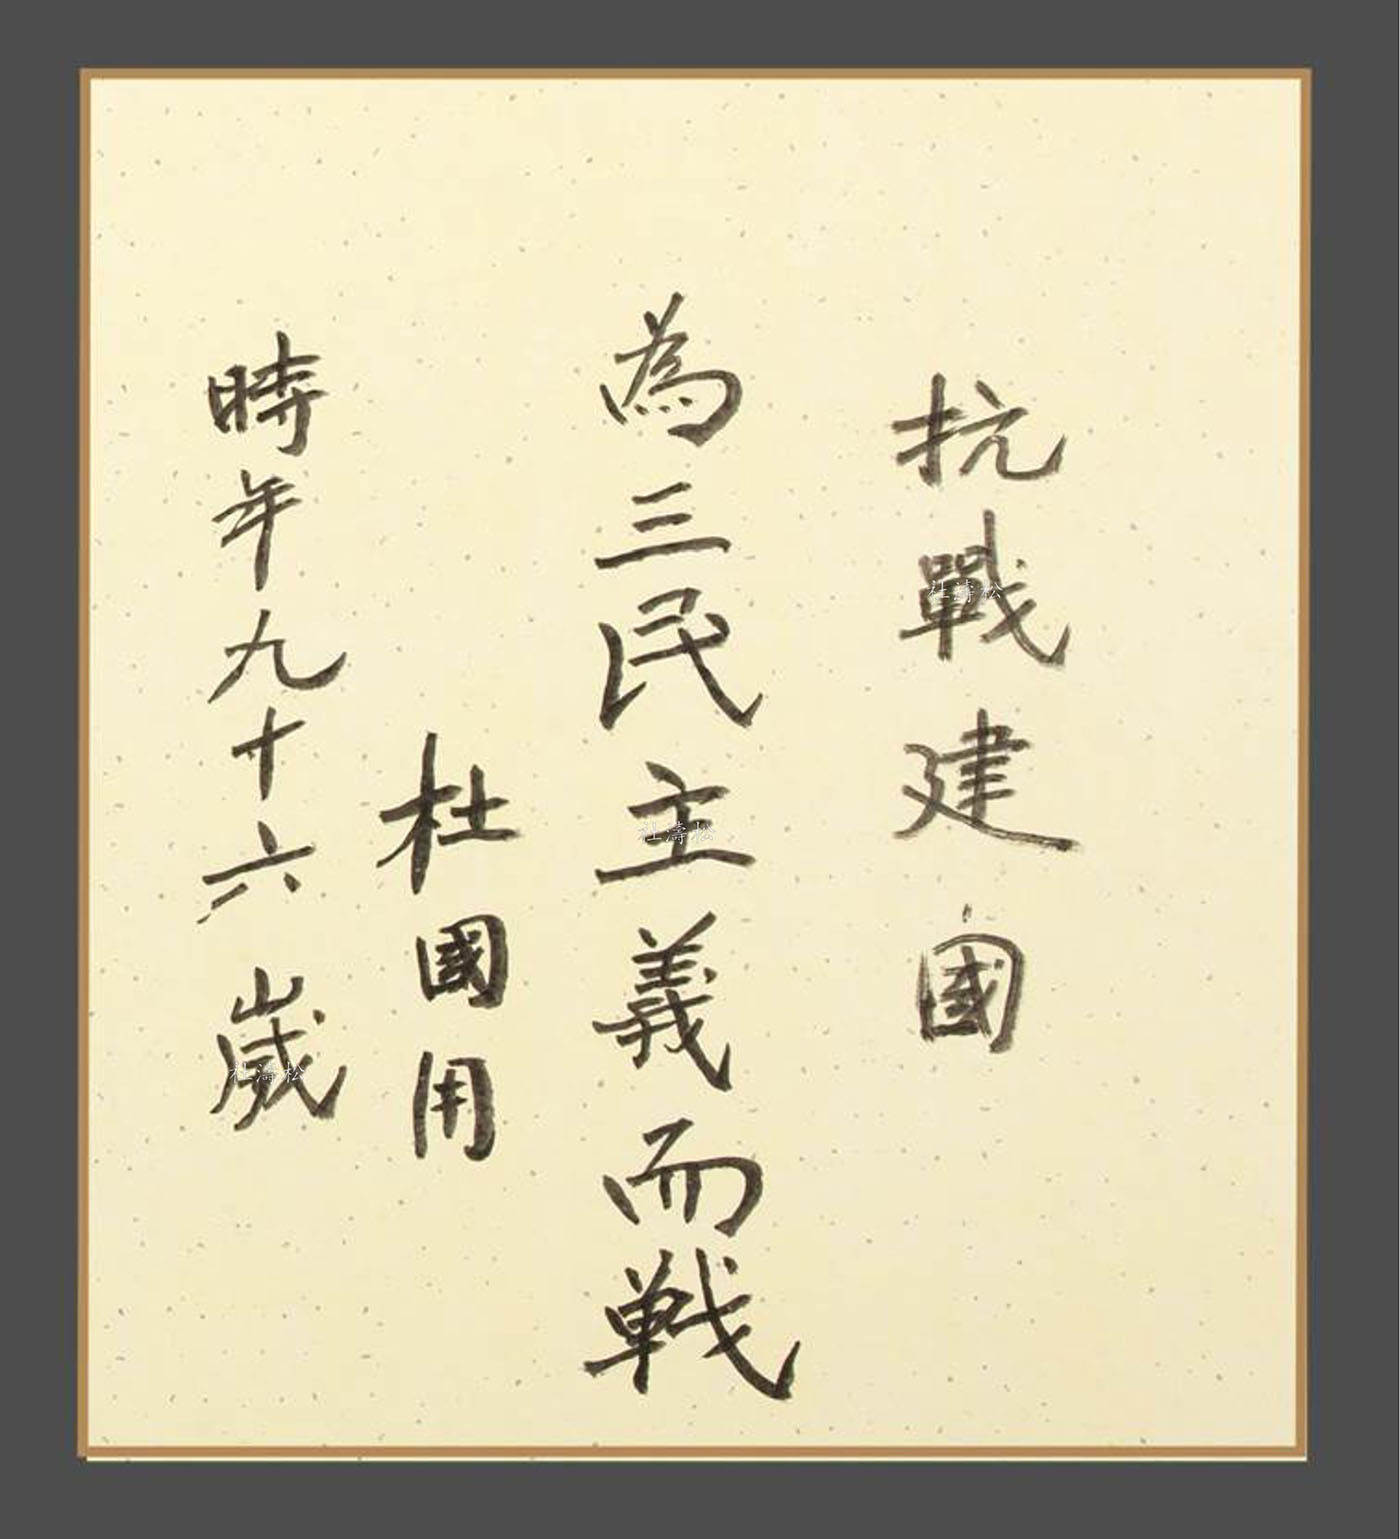 抗戰建國
為三民主義而戦
杜國用
時年九十六歲
杜濤松
杜濤松
杜濤松